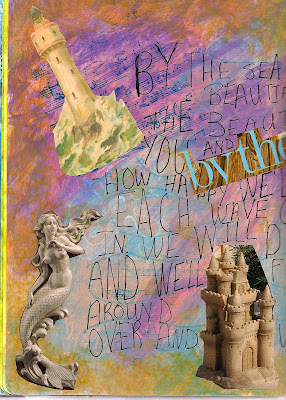 BY THE SEA
THE BEAUTI
THE BEAUT
YOU AND
by the
HOW HAPPY WE'L
EACH WAVE C
IN WE WILL D
AND WE'LL F
AROUND
OVER AND